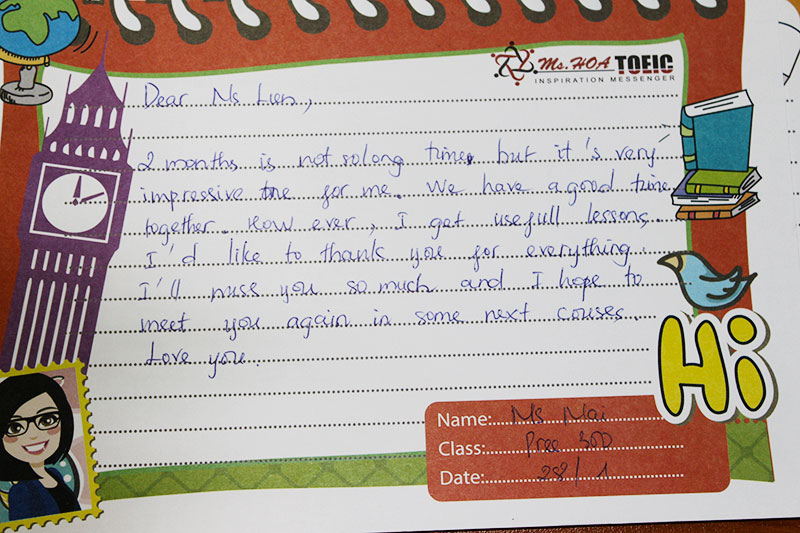 Ms. HOA TOEIC
INSPIRATION MESSENGER
Dear Ms Lien,
2 months is not so long time, but it's very
impressive for me. We have a good time
together. How ever, I get usefull lessons.
I'd like to thank you for everything.
I'll miss you so much and I hope to
meet you again in some next courses.
Love you.
Hi
Name: Ms Mai
Class: Pree
Date: